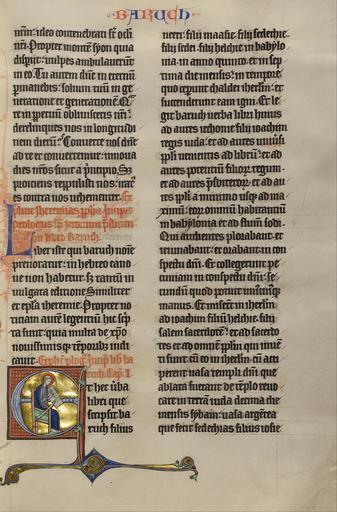 BARUCH
nr̄m: ideo contenebrati sr̄ oc̄li
nr̄i. Propter montē syon quia
disp̄ijt: uulpes ambulauerūt
in eo. Tu autem dn̄e in eternū
permanebis: solium tuū in ge
neratione et generationē. Q̄re
in ꝑpetuū obliuisceris nr̄i:
derelinques nos in longitudi
nem dierū? Conuerte nos dn̄e
ad te et conuertemur: innoua
dies nr̄os sicut a p̄ncipio. Sȝ
proiciens reppulisti nos: irat̄
es contra nos uehementer.
in libro Baruch.
Liber iste qui baruch nomē
prenotatur: in hebreo cano
ne non habetur: sȝ tantū in
uulgata editione. Similiter
et epl̄a iheremie. Propter no
ticiam autē legentiū hic sc̄p
ta sunt: quia multa de xp̄o
nouissimisqȝ temporibȝ indi
cant.
Et hec ūba
libri que
scripsit ba
ruch filius
neeri: filij maasie: filij sedechie:
filij sedei: filij helchie in babylo
nia in anno quinto: et in sep
tima die mensis: in tempore
quo ceperunt chaldei ihrl̄m: et
succenderunt eam igni. Et le
git baruch uerba libri huius
ad aures iechonie filij ioachim
regis iuda: et ad aures uniūsi
ppl̄i uenientis ad librū: et ad
aures potentiū filiorȝ regum:
et ad aures p̄sbiterorȝ: et ad au
res ppl̄i a minimo usqȝ ad ma
ximū: eorȝ omniū habitantiū
in babylonia et ad flum̄ sodi.
Qui audientes plorabant: et
ieiunabant: et orabant in con
spectu dn̄i. Et collegerunt pe
cuniam in conspectu dn̄i: se
cundū quod potuit uniuscuiꝰqȝ
manus. Et miserūt in ihrl̄m
ad ioachim filiū helchie: filij
salem sacerdotē: et ad sacerdo
tes et ad omnem ppl̄m qui inuē
ti sunt cū eo in ihrl̄m: cū acci
perent uasa templi dn̄i que
ablata fuerant de tēplo reuo
care in terrā iuda decima die
mensis syban: uasa argētea
que fecit sedechias filius iosie